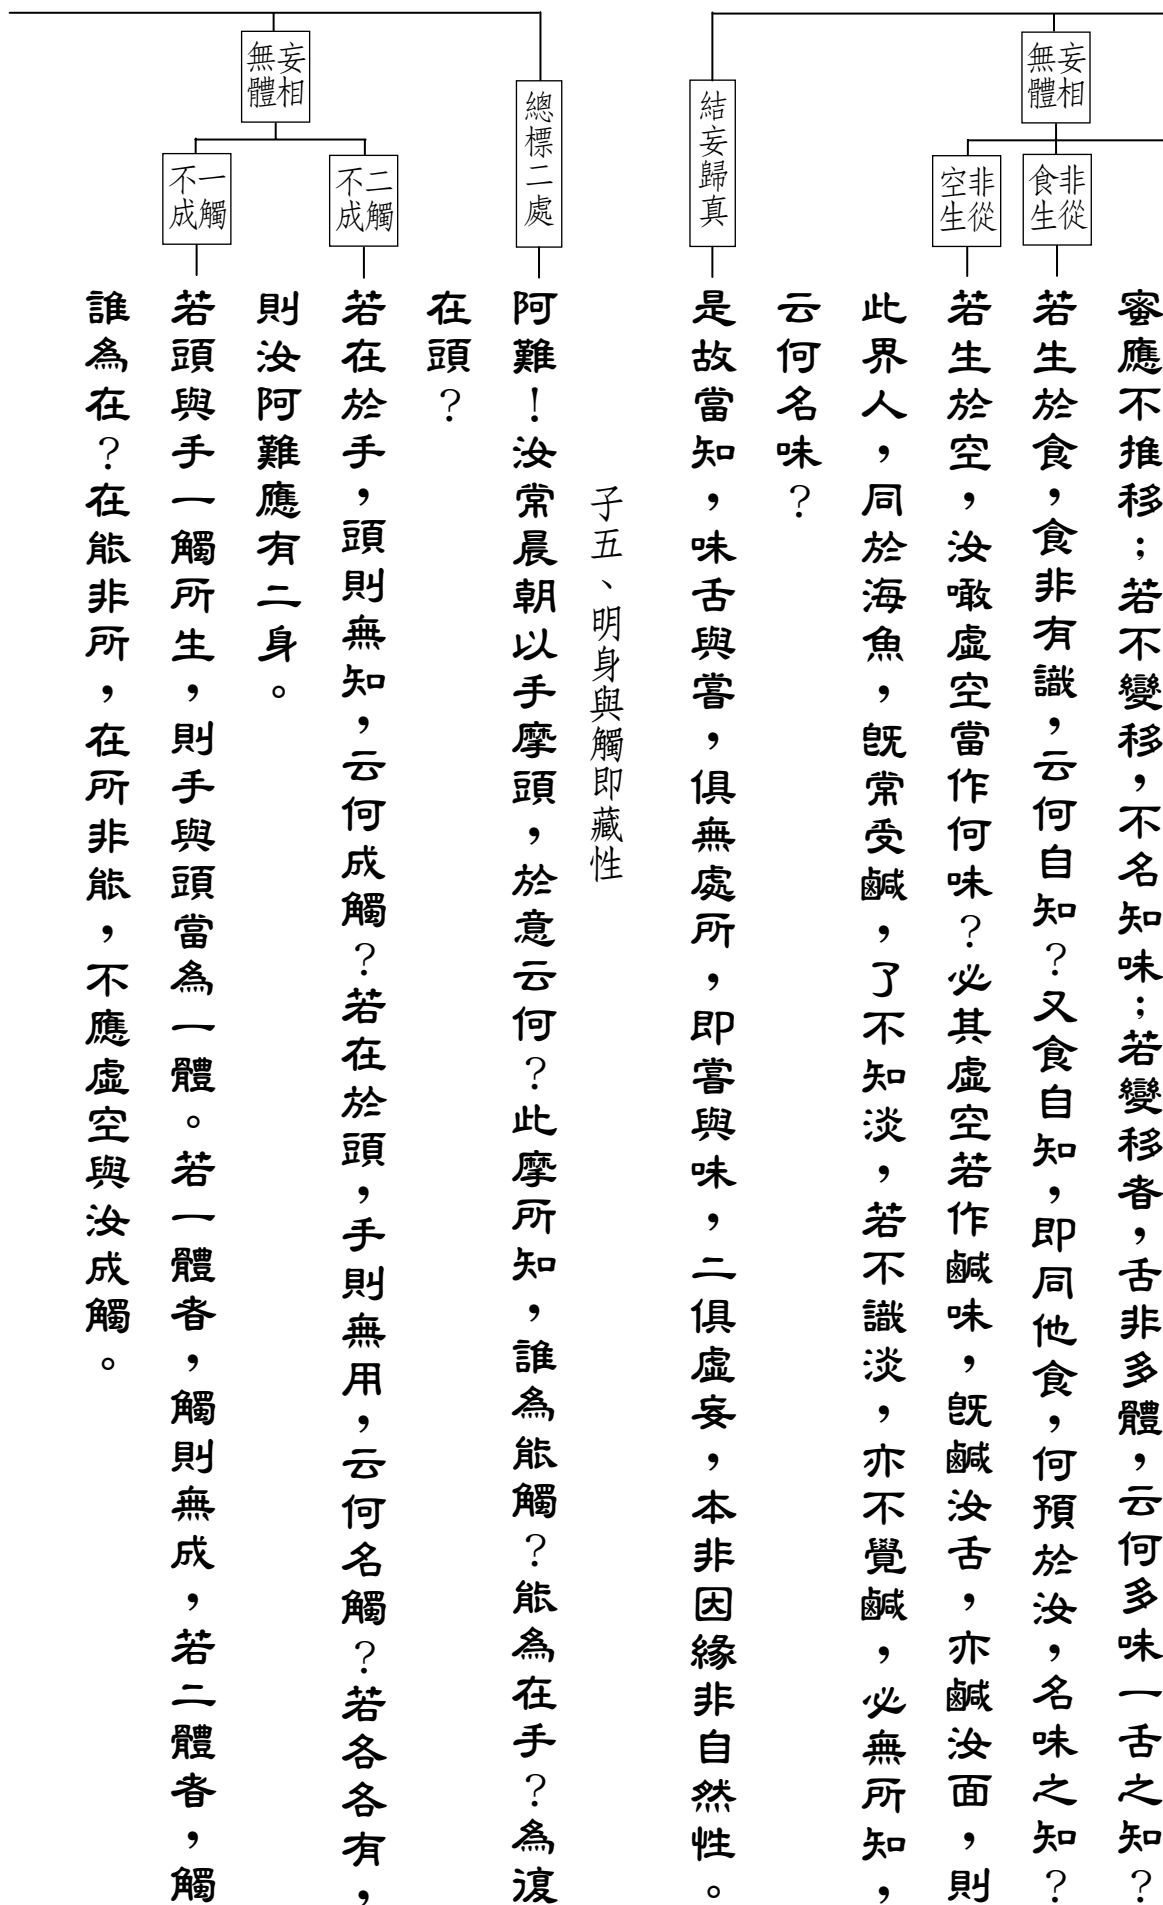 妄相
無體
非從
食生
非從
空生
蜜應不推移；若不變移，不名知味；若變移者，舌非多體，云何多味一舌之知？
若生於食，食非有識，云何自知？又食自知，即同他食，何預於汝，名味之知？
若生於空，汝噉虛空當作何味？必其虛空若作鹹味，既鹹汝舌，亦鹹汝面，則
此界人，同於海魚，既常受鹹，了不知淡，若不識淡，亦不覺鹹，必無所知，
云何名味？
結妄歸真
是故當知，味舌與嘗，俱無處所，即嘗與味，二俱虛妄，本非因緣非自然性。
子五、明身與觸即藏性
總標二處
阿難！汝常晨朝以手摩頭，於意云何？此摩所知，誰為能觸？能為在手？為復
在頭？
妄相
無體
二觸
不成
若在於手，頭則無知，云何成觸？若在於頭，手則無用，云何名觸？若各各有，
則汝阿難應有二身。
一觸
不成
若頭與手一觸所生，則手與頭當為一體。若一體者，觸則無成，若二體者，觸
誰為在？在能非所，在所非能，不應虛空與汝成觸。